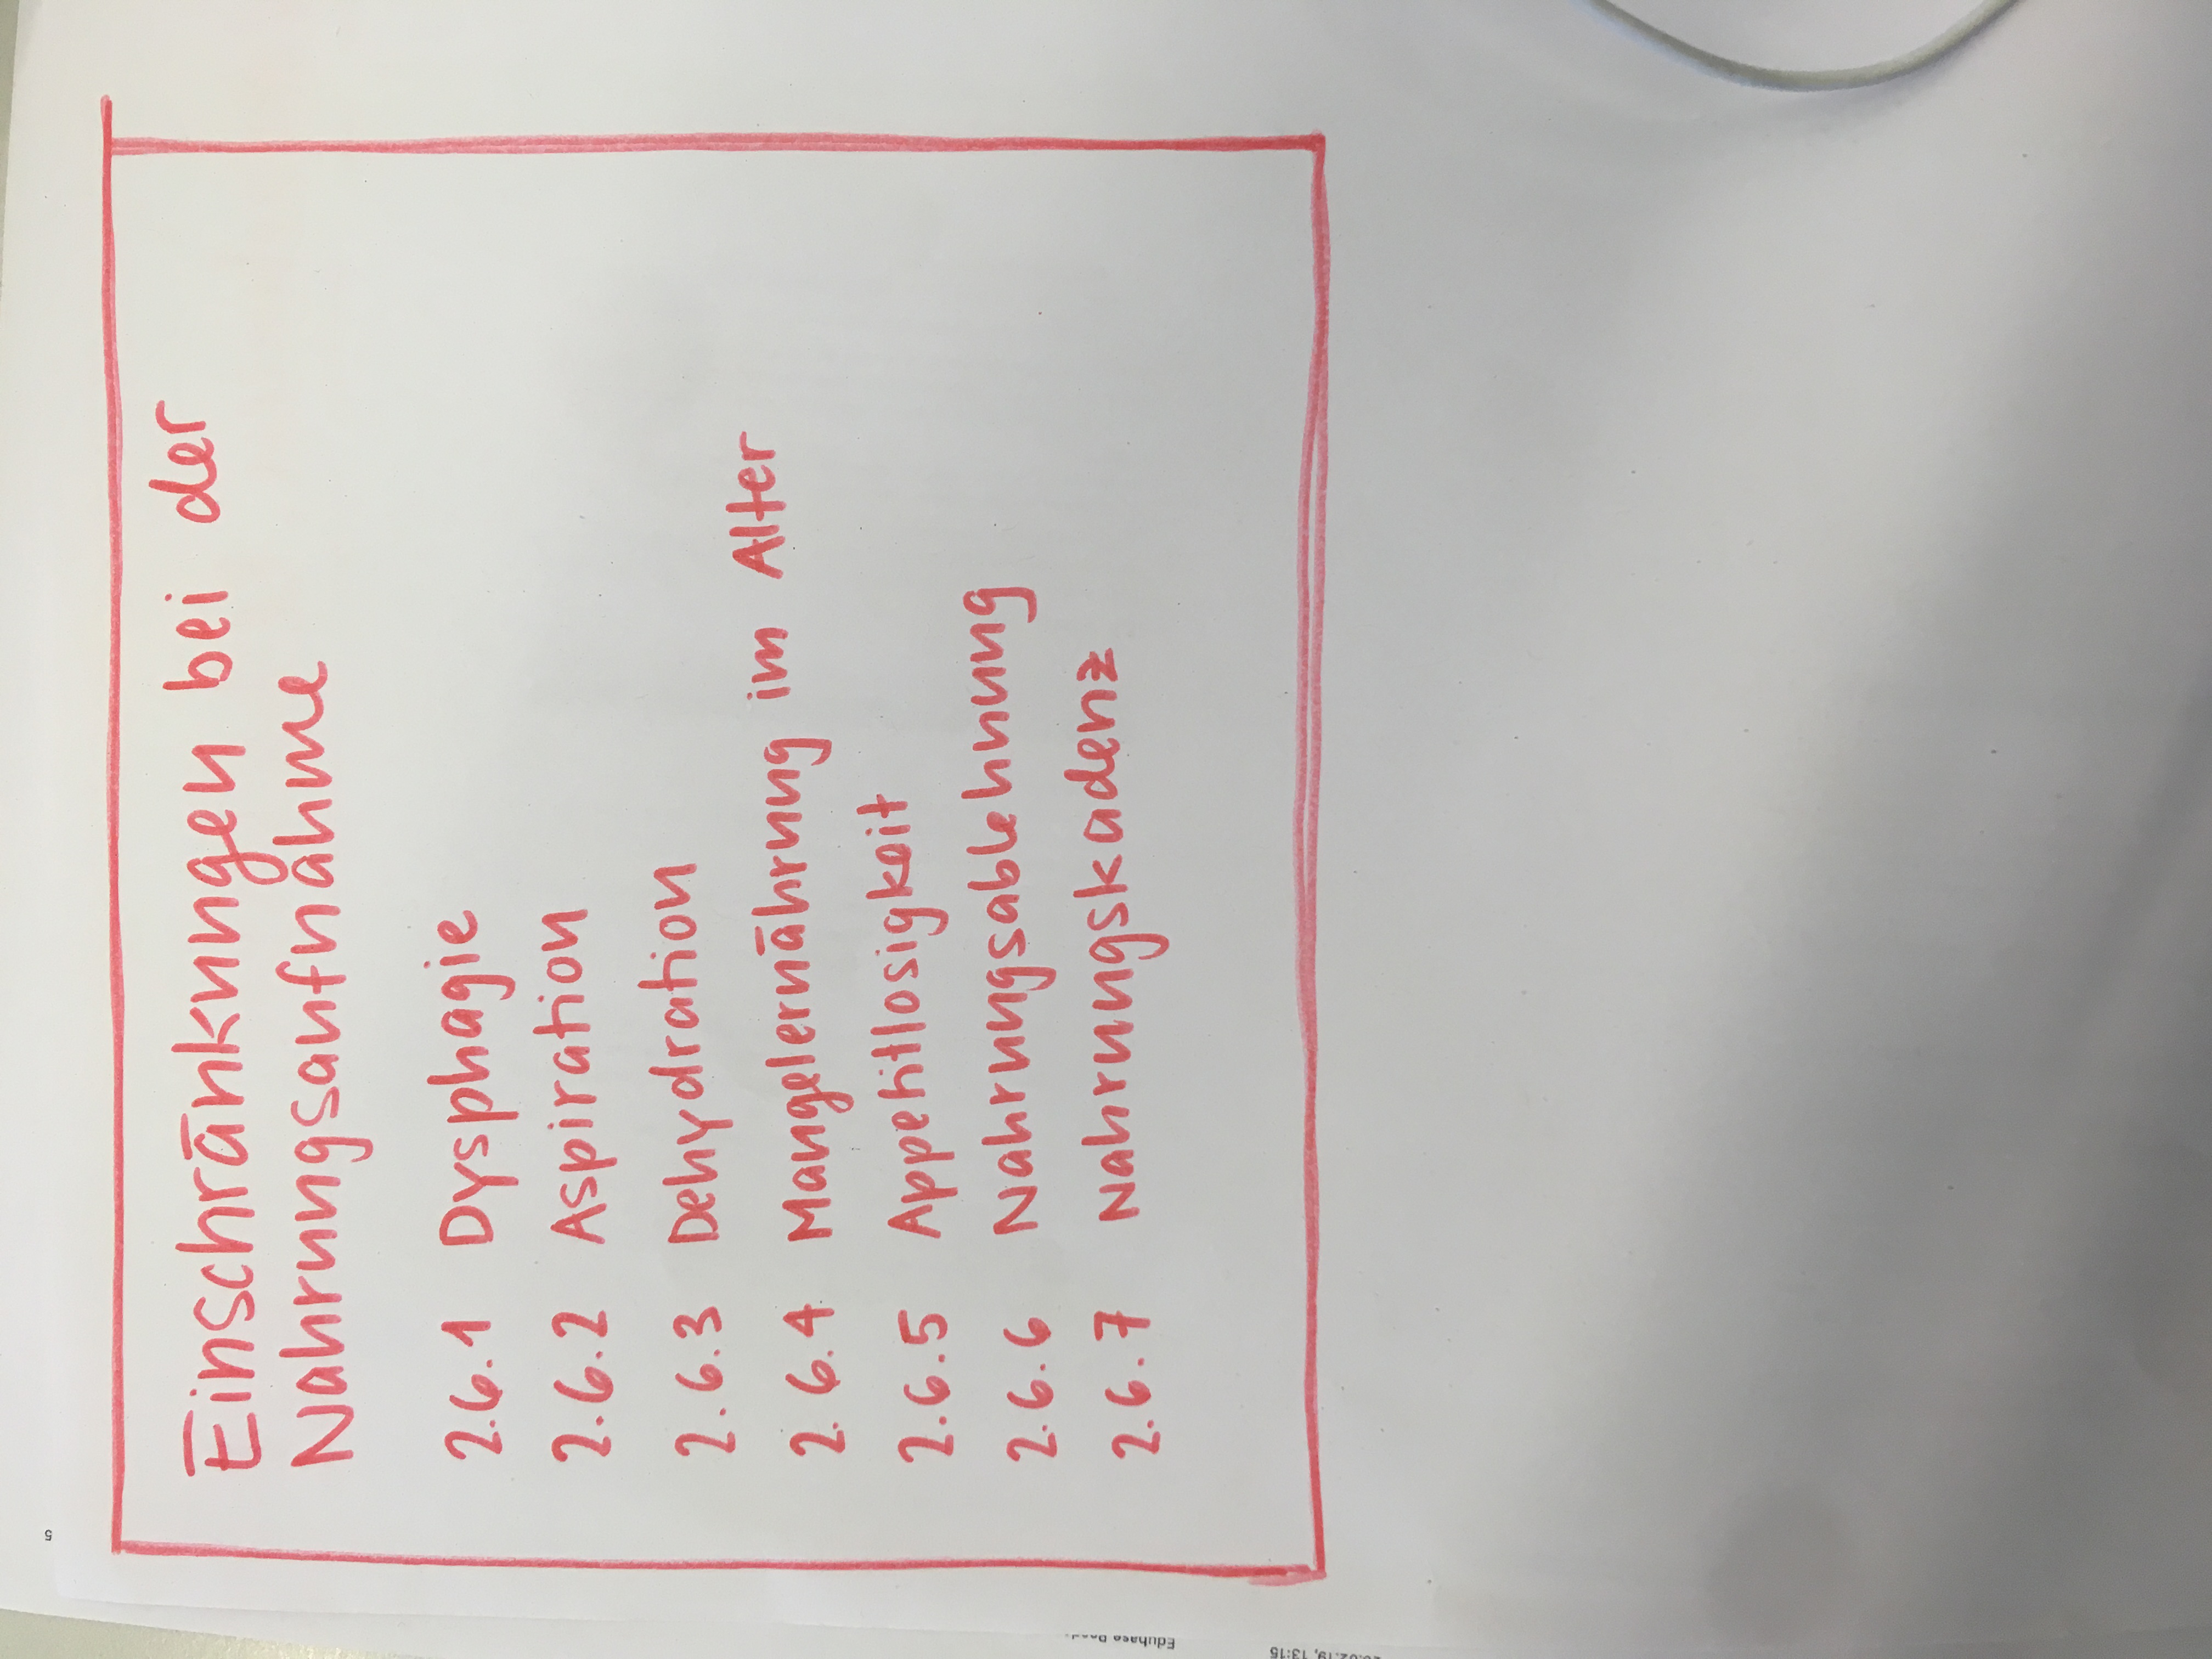 Einschränkungen bei der
Nahrungsaufnahme
2.6.1 Dysphagie
2.6.2 Aspiration
2.6.3 Dehydration
2.6.4 Mangelernährung im Alter
2.6.5 Appetitlosigkeit
2.6.6 Nahrungsablehnung
2.6.7 Nahrungskadenz
5
Edubase
13:15